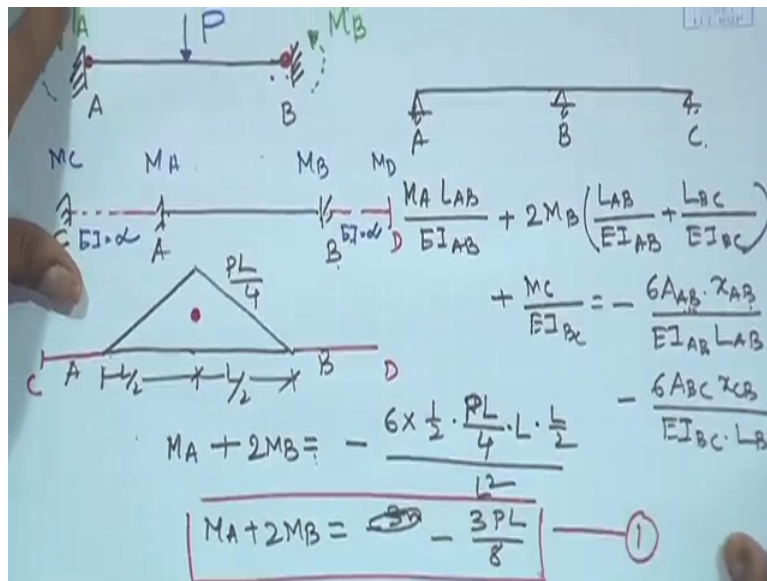 MA P MB
A B
A B C.
MC MA MB MD
C EI=α A B EI=α D
MA LAB / EIAB + 2MB (LAB / EIAB + LBC / EIBC)
+ MC / EIBC = - 6AAB · xAB / EIAB LAB
- 6ABC xCB / EIBC · LB
PL/4
C A L/2 L/2 B D
MA + 2MB = - 6 × 1/2 · PL/4 · L · L/2 / L²
MA + 2MB = - 3PL/8 1